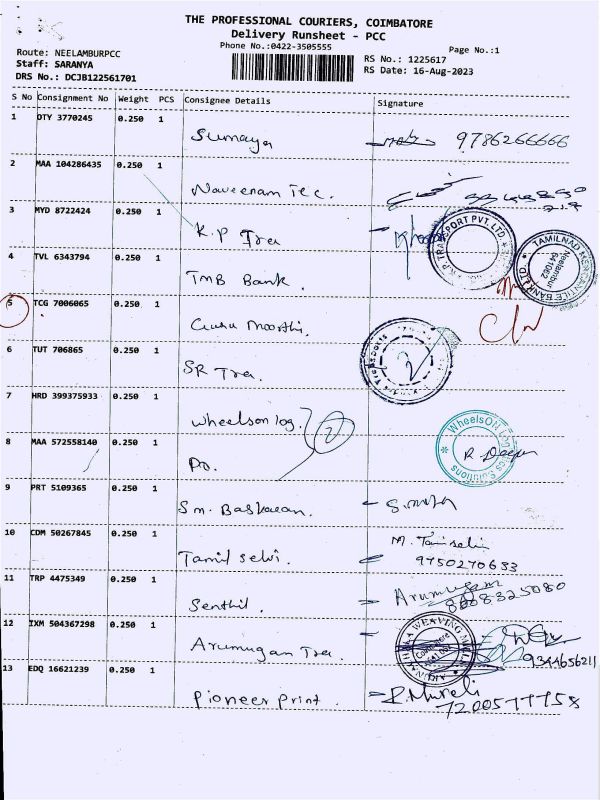 THE PROFESSIONAL COURIERS, COIMBATORE
Delivery Runsheet - PCC
Phone No.:0422-3505555
Page No.:1
Route: NEELAMBURPCC
Staff: SARANYA
DRS No.: DCJB122561701
RS No.: 1225617
RS Date: 16-Aug-2023
S No Consignment No Weight PCS Consignee Details Signature
1 DTY 3770245 0.250 1
Sumaya 9786266666
2 MAA 104286435 0.250 1
Naveenam Tec.
3 MYD 8722424 0.250 1
K.P Tra
4 TVL 6343794 0.250 1
TMB Bank.
TAMILNAD MERCANTILE BANK LTD
Neelambur
641062
5 TCG 7006065 0.250 1
Guru Moorthi.
6 TUT 706865 0.250 1
SR Tra.
7 HRD 399375933 0.250 1
Wheelson log. 2
8 MAA 572558140 0.250 1
Do.
WheelsON Solutions
R. Deepa
9 PRT 5109365 0.250 1
Sm. Baskaran.
10 CDM 50267845 0.250 1
Tamil selvi. M. Tamilselvi
9750270633
11 TRP 4475349 0.250 1
Senthil. Arumugam
8008325080
12 IXM 504367298 0.250 1
Arumugan Tra. 9344656211
13 EDQ 16621239 0.250 1
Pioneer print. R. Murali